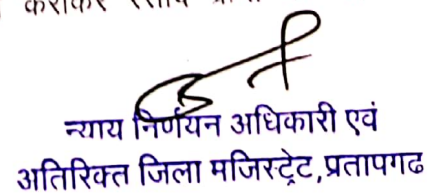 कराकर
न्याय निर्णयन अधिकारी एवं
अतिरिक्त जिला मजिस्ट्रेट,प्रतापगढ